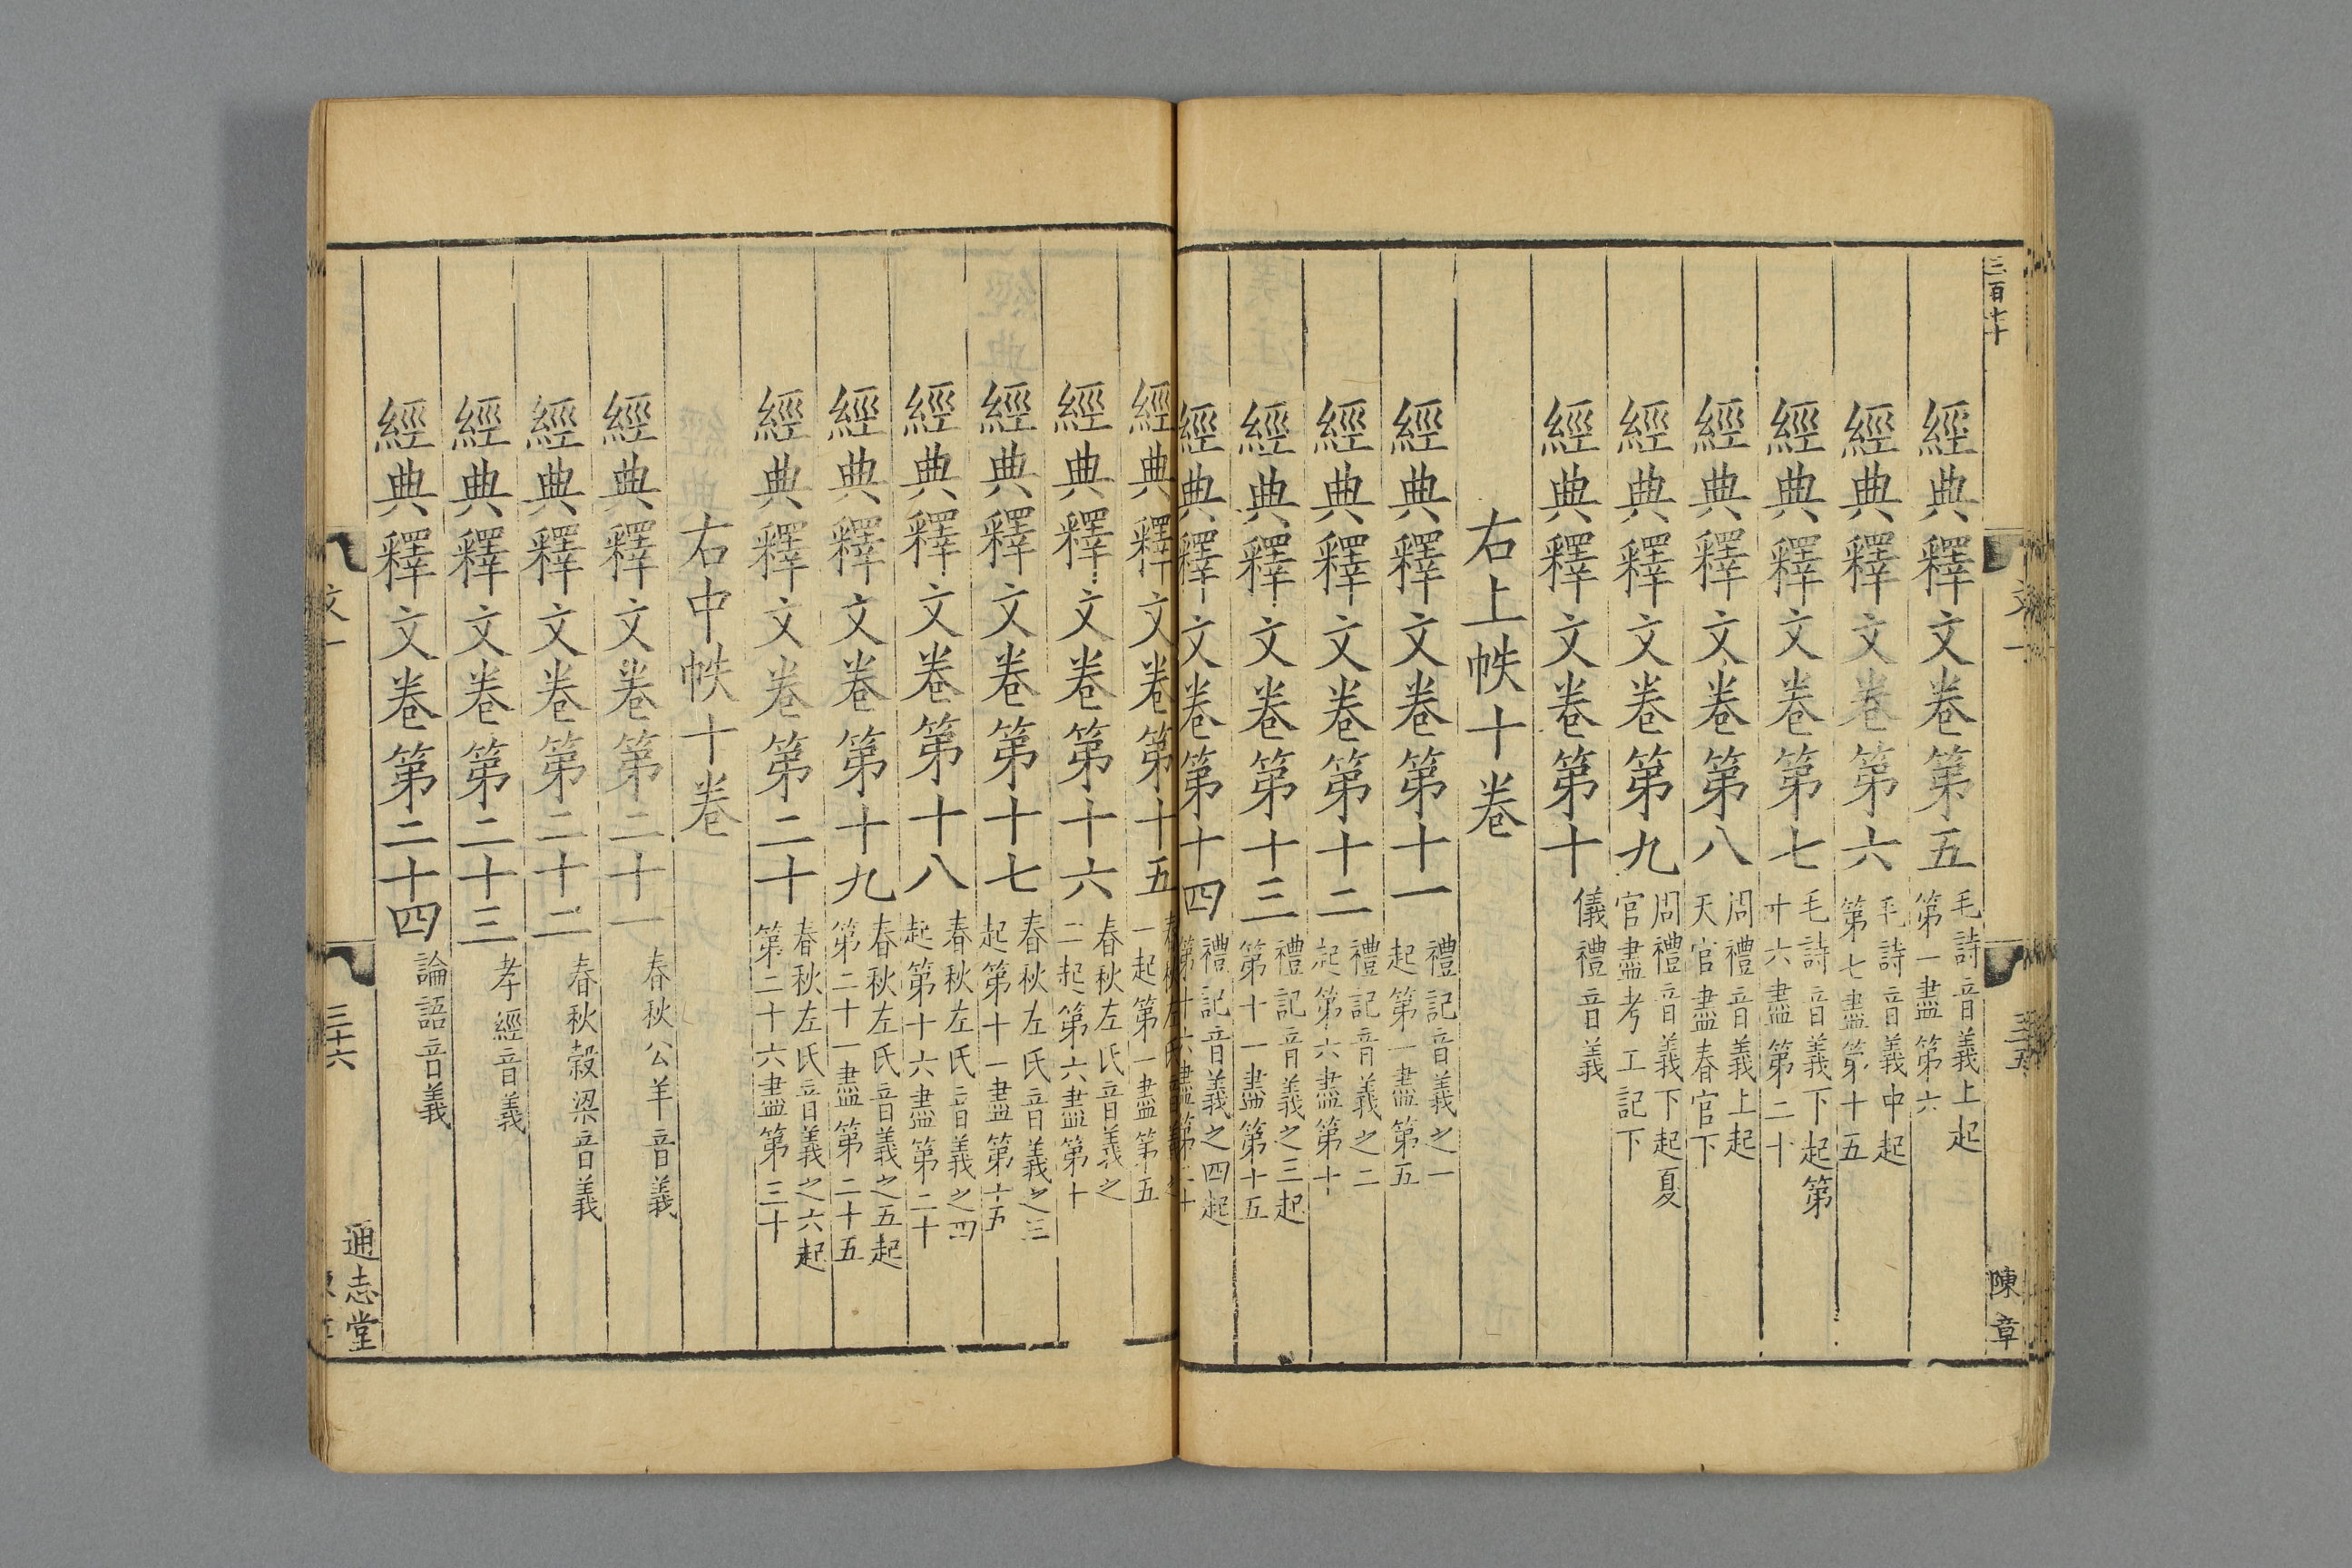 三百七十
陳章
經典釋文卷第五 毛詩音義上起第一盡第六
經典釋文卷第六 毛詩音義中起第七盡第十五
經典釋文卷第七 毛詩音義下起第十六盡第二十
經典釋文卷第八 周禮音義上起天官盡春官下
經典釋文卷第九 周禮音義下起夏官盡考工記下
經典釋文卷第十 儀禮音義
右上帙十卷
經典釋文卷第十一 禮記音義之一起第一盡第五
經典釋文卷第十二 禮記音義之二起第六盡第十
經典釋文卷第十三 禮記音義之三起第十一盡第十五
經典釋文卷第十四 禮記音義之四起第十六盡第二十
經典釋文卷第十五 春秋左氏一起第一盡第五
經典釋文卷第十六 春秋左氏音義之二起第六盡第十
經典釋文卷第十七 春秋左氏音義之三起第十一盡第十五
經典釋文卷第十八 春秋左氏音義之四起第十六盡第二十
經典釋文卷第十九 春秋左氏音義之五起第二十一盡第二十五
經典釋文卷第二十 春秋左氏音義之六起第二十六盡第三十
右中帙十卷
經典釋文卷第二十一 春秋公羊音義
經典釋文卷第二十二 春秋穀梁音義
經典釋文卷第二十三 孝經音義
經典釋文卷第二十四 論語音義
文一 三十六
通志堂